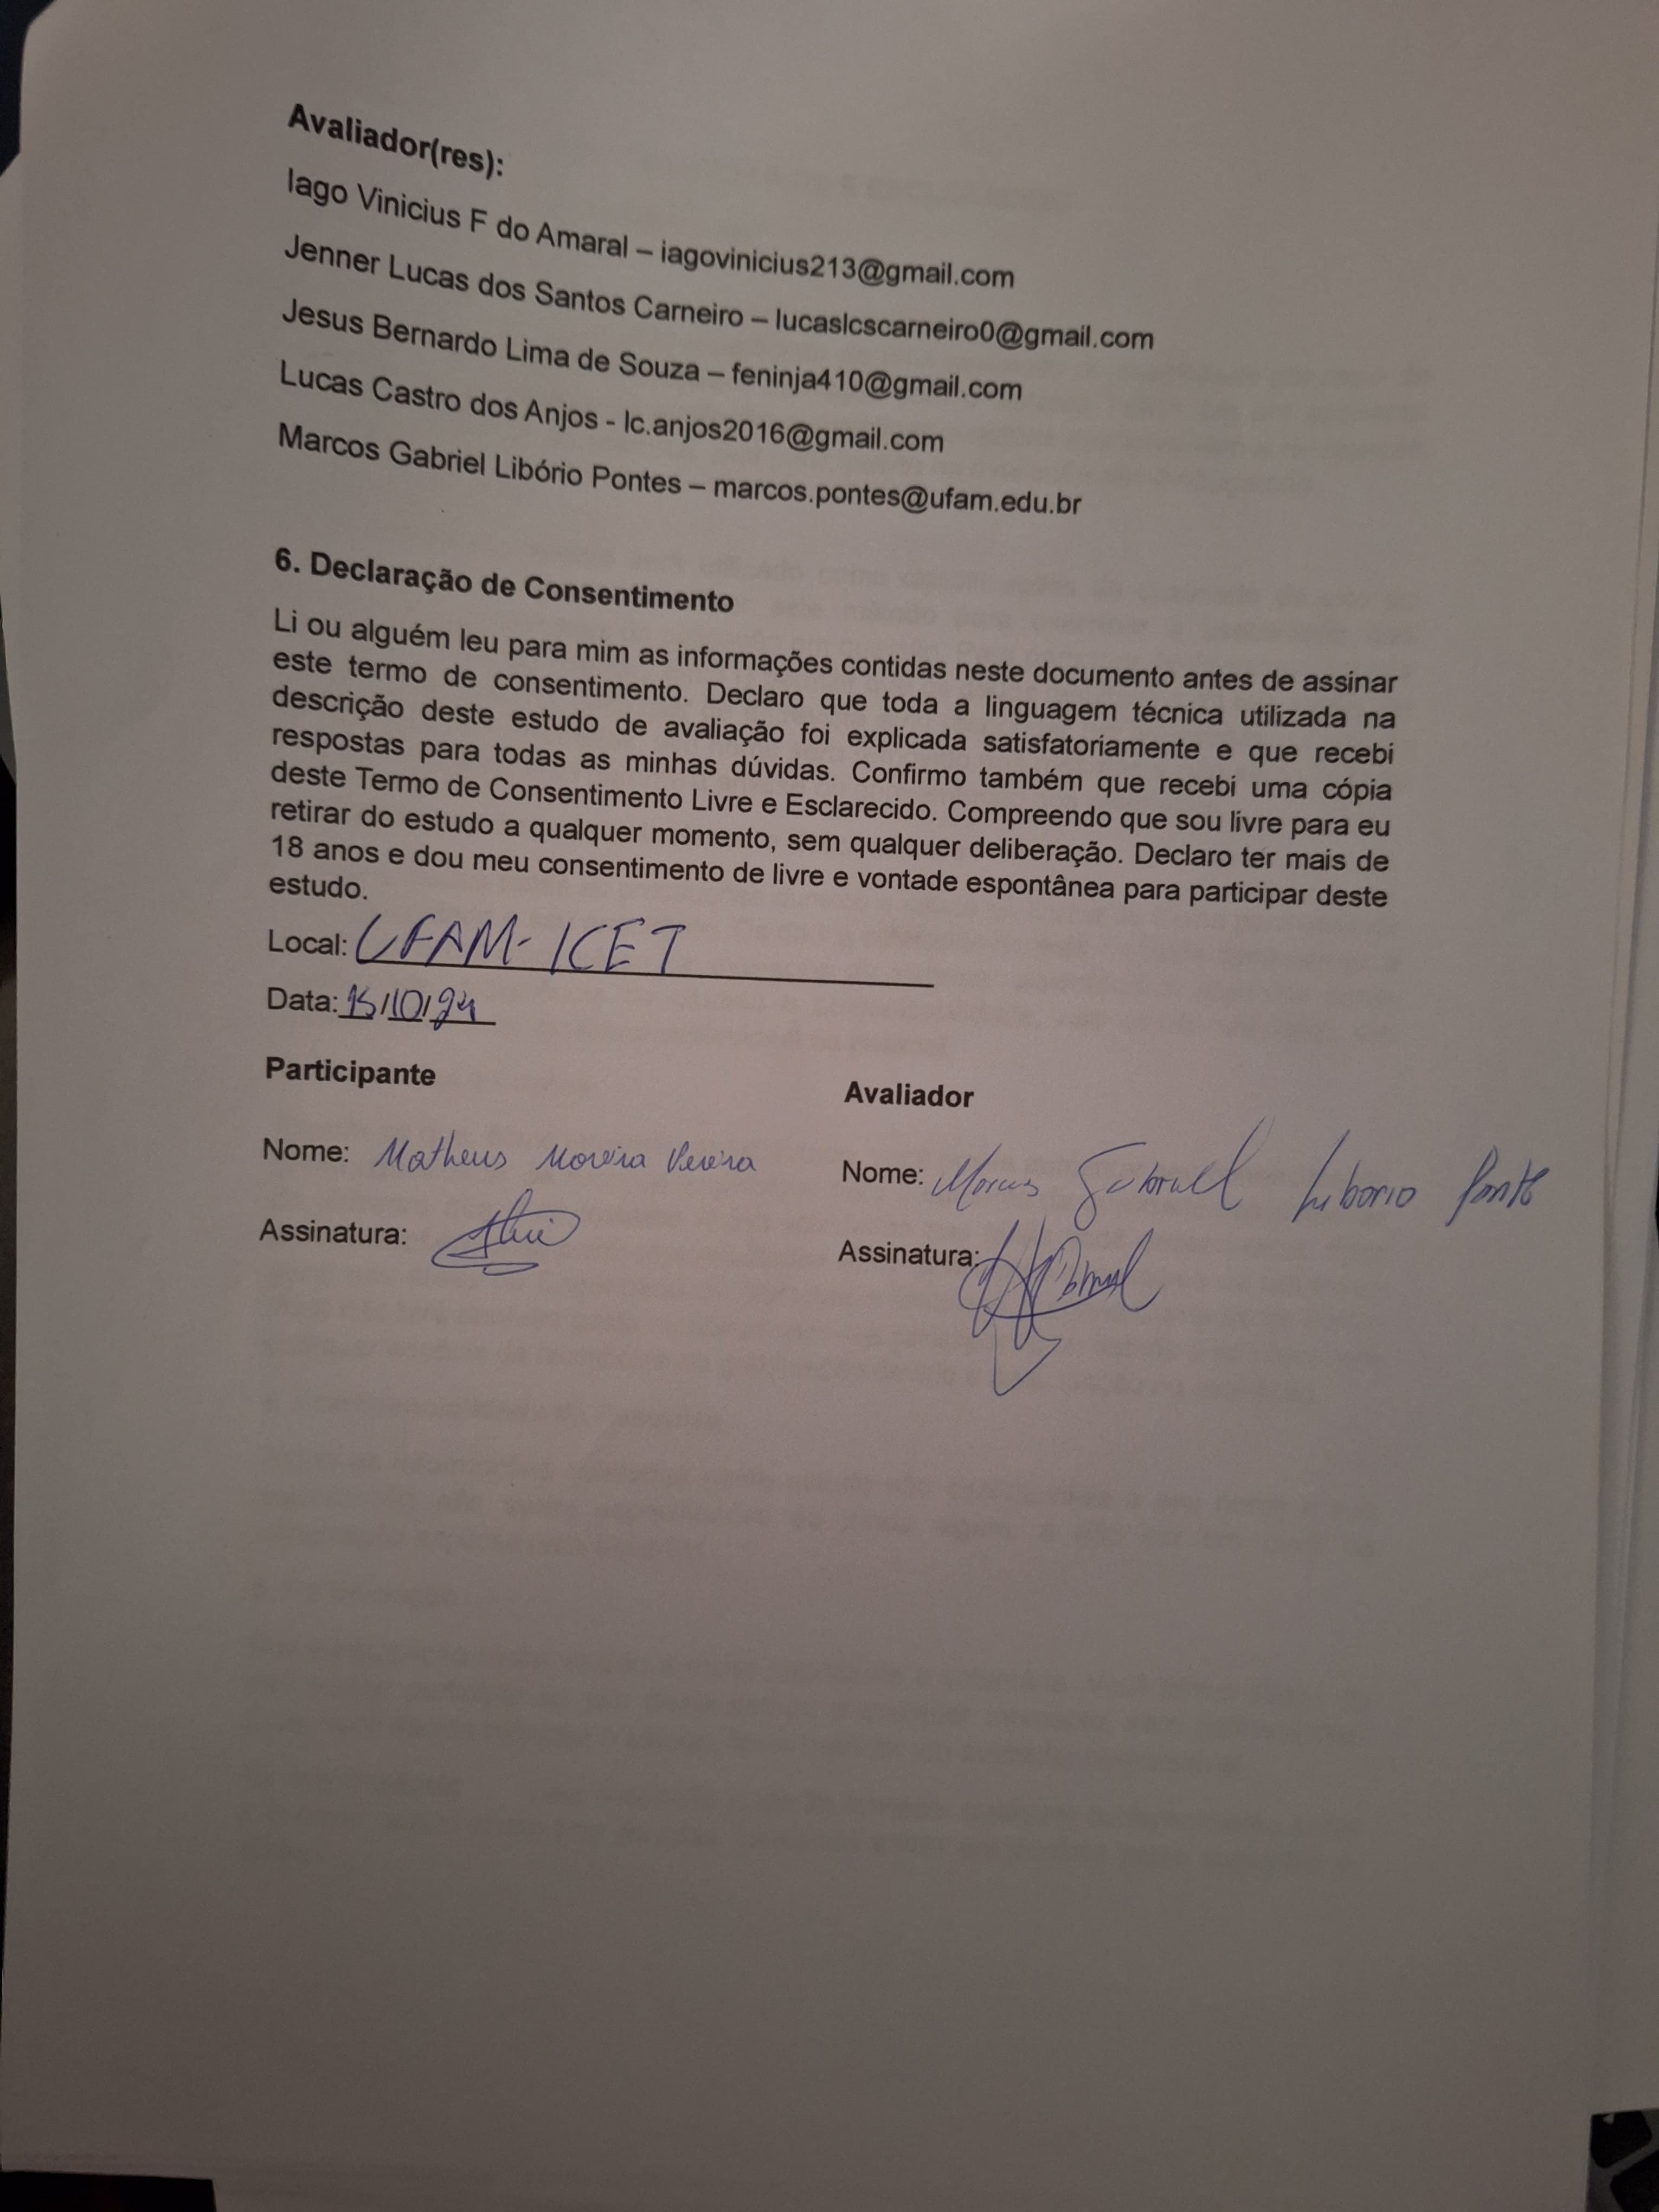 Avaliador(res):
Iago Vinicius F do Amaral – iagovinicius213@gmail.com
Jenner Lucas dos Santos Carneiro – lucaslcscarneiro0@gmail.com
Jesus Bernardo Lima de Souza – feninja410@gmail.com
Lucas Castro dos Anjos - lc.anjos2016@gmail.com
Marcos Gabriel Libório Pontes – marcos.pontes@ufam.edu.br
6. Declaração de Consentimento
Li ou alguém leu para mim as informações contidas neste documento antes de assinar
este termo de consentimento. Declaro que toda a linguagem técnica utilizada na
descrição deste estudo de avaliação foi explicada satisfatoriamente e que recebi
respostas para todas as minhas dúvidas. Confirmo também que recebi uma cópia
deste Termo de Consentimento Livre e Esclarecido. Compreendo que sou livre para eu
retirar do estudo a qualquer momento, sem qualquer deliberação. Declaro ter mais de
18 anos e dou meu consentimento de livre e vontade espontânea para participar deste
estudo.
Local: UFAM-ICET
Data: 15/10/24
Participante
Nome: Matheus Moreira Pereira
Assinatura:
Avaliador
Nome: Marcos Gabriel Liborio Pontes
Assinatura: